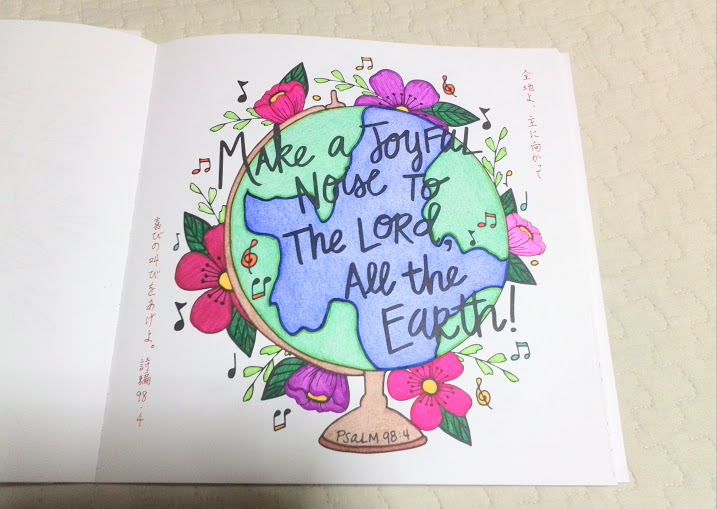 Make a Joyful
Noise To
The Lord,
All the
Earth!
Psalm 98:4
全地よ、主に向かって
喜びの叫びをあげよ。 詩編98・4